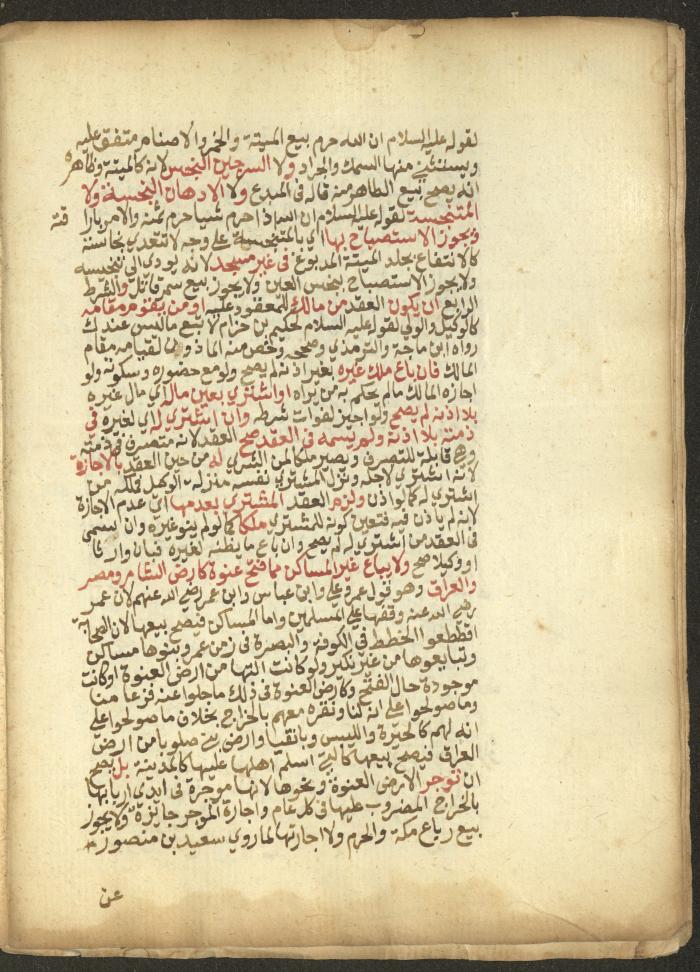 لقوله عليه السلام ان الله حرم بيع الميتة والخمر والاصنام متفق عليه
ويستثنى منها السمك والجراد ولا السرجين النجس لانه كالميتة وظاهره
انه يصح بيع الطاهر منه قاله في المبدع ولا الادهان النجسة ولا
المتنجسة لقوله عليه السلام ان الله اذا حرم شيا حرم ثمنه والامر بارا
قته
ويجوز الاستصباح بها اي بالمتنجسة على وجه لا تتعدى نجاسته
كالانتفاع بجلد الميتة المدبوغ في غير مسجد لانه يودي الى تنجيسه
ولا يجوز الاستصباح بنجس العين ولا يجوز بيع سم قاتل والشرط
الرابع ان يكون العقد من مالك للمعقود عليه او من يقوم مقامه
كالوكيل والولي لقوله عليه السلام لحكيم بن حزام لا تبع ما ليس عندك
رواه ابن ماجة والترمذي وصححه وخص منه الماذون لقيامه مقام
المالك فان باع ملك غيره بغير اذنه لم يصح ولو مع حضوره وسكوته ولو
اجازه المالك مالم يحكم به من يراه او اشترى بعين مال اي مال غيره
بلا اذنه لم يصح ولو اجيز لفوات شرطه وان اشترى له اي لغيره في
ذمته بلا اذنه ولم يسمه في العقد صح العقد لانه متصرف في ذمته
وهي قابلة للتصرف ويصير ملكا لمن الشري له من حين العقد بالاجازة
لانه اشترى لاجله ونزل المشتري نفسه منزلة الوكيل فملكه من
اشترى له كما لو اذن ولزم العقد المشتري بعدمها اي عدم الاجازة
لانه لم ياذن فيه فتعين كونه للمشتري ملكا كما لو لم ينو غيره وان سمى
في العقد من اشترى له لم يصح وان باع ما يظنه لغيره فبان وارثا
او وكيلا صح ولا يباع غير المساكن مما فتح عنوة كارض الشام ومصر
والعراق وهو قول عمر وعلي وابن عباس وابن عمر رضي الله عنهم لان عمر
رضي الله عنه وقفها على المسلمين واما المساكن فيصح بيعها لان الصحابة
اقتطعوا الخطط في الكوفة والبصرة في زمن عمر وبنوها مساكن
وتبايعوها من غير نكير ولو كانت التها من ارض العنوة او كانت
موجودة حال الفتح وكارض العنوة في ذلك ما جلوا عنه فزعا منا
وما صولحوا على انه لنا ونقره معهم بالخراج بخلاف ما صولحوا على
انه لهم كالحيرة والليس وبانقيا وارض بني صلوبا من ارض
العراق فيصح بيعها كالتي اسلم اهلها عليها كالمدينة بل يصح
ان توجر الارض العنوة ونحوها لانها موجرة في ايدي اربابها
بالخراج المضروب عليها في كل عام واجارة الموجر جايزة ولا يجوز
بيع رباع مكة والحرم ولا اجارتها لما روي سعيد بن منصور
عن